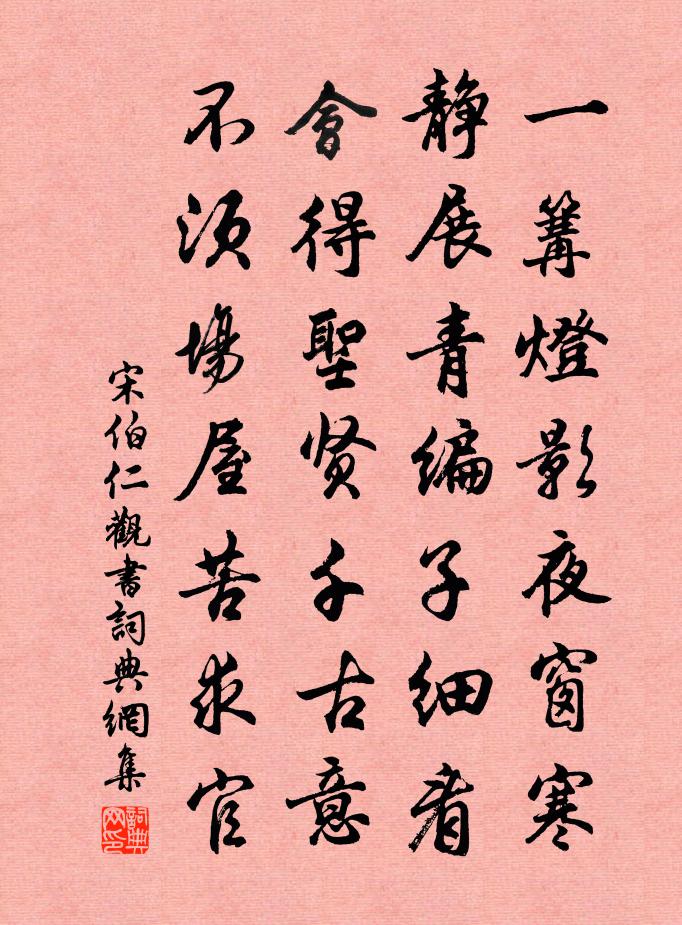 一篝燈影夜窗寒
靜展青編子細看
會得聖贤千古意
不須場屋苦求官
宋伯仁觀書詞典網集
詞典网印